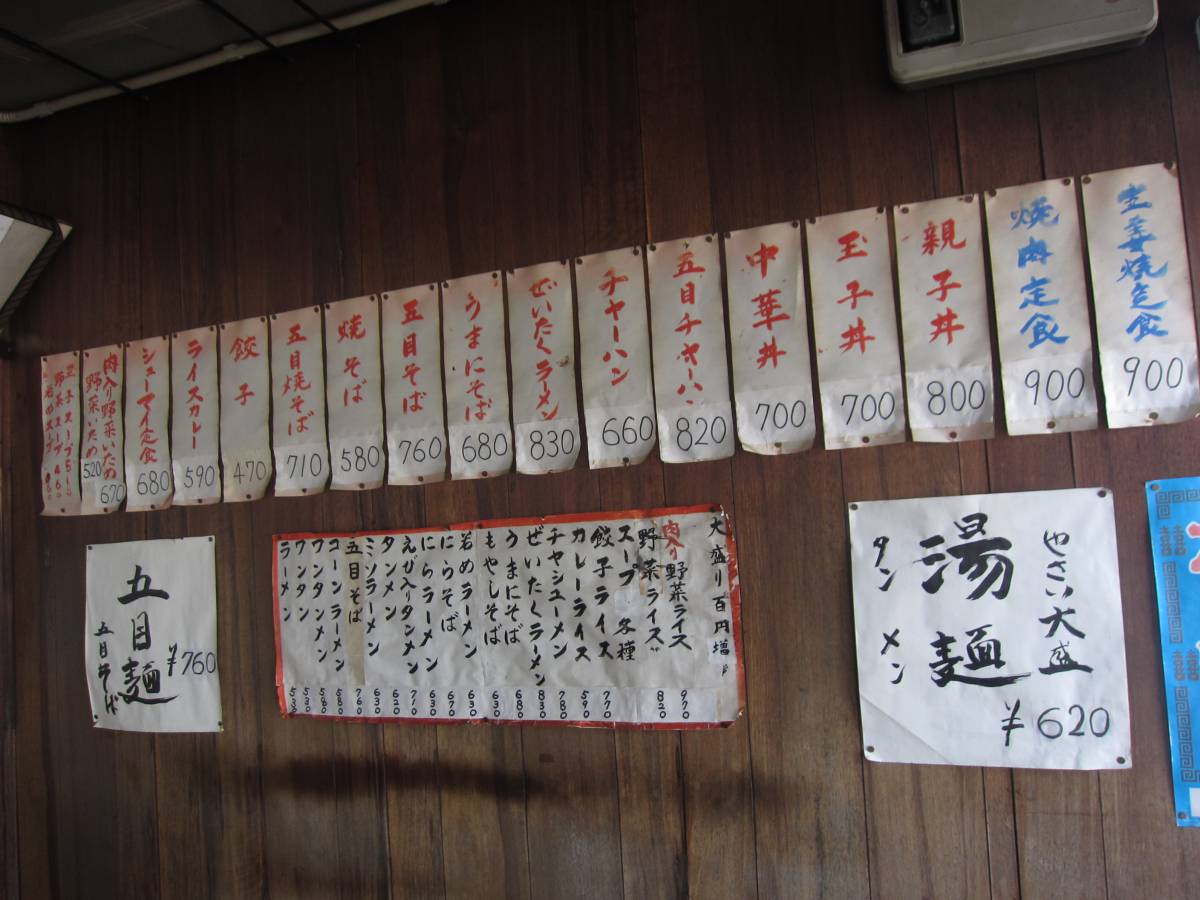 生姜焼定食
900
焼肉定食
900
親子丼
800
玉子丼
700
中華丼
700
五目チャーハン
820
チャーハン
660
ぜいたくラーメン
830
うまにそば
680
五目そば
760
焼そば
580
五目焼そば
710
餃子
470
ライスカレー
590
シューマイ定食
680
肉入り野菜いため
670
野菜いため
520
玉子スープ
野菜スープ 460
わかめスープ
やさい大盛
湯麺
タンメン
¥620
大盛り百円増
肉入り野菜ライス 970
野菜ライス 820
スープ各種
餃子ライス 770
カレーライス 590
チャシューメン 780
ぜいたくラーメン 830
うまにそば 680
もやしそば 630
若めラーメン 670
にらそば 630
にらラーメン 630
えび入りタンメン 770
タンメン 620
ミソラーメン 630
五目そば 760
コーンラーメン 580
ワンタンメン 580
ワンタン 530
ラーメン 530
五目麺
¥760
五目そば